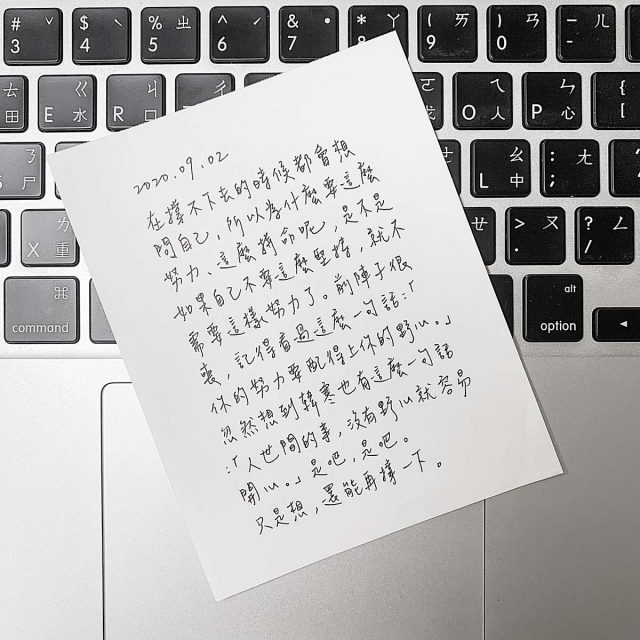 # ˇ
3
$ ˋ
4
% ㄓ
5
^ ˊ
6
& ˙
7
* ㄚ
8
( ㄞ
9
) ㄢ
0
— ㄦ
-
ㄊ
田
E ㄍ
水
R ㄐ
口
ㄔ
O ㄟ
人
P ㄣ
心
{
[
ㄋ
尸
L ㄠ
中
: ㄤ
;
"
'
ㄌ
X 重
> ㄡ
.
? ㄥ
/
⌘
command
alt
option
◀
2020.09.02
在撐不下去的時候都會想
問自己，所以為什麼要這麼
努力、這麼拼命呢，是不是
如果自己不要這麼堅持，就不
需要這樣努力了。前陣子很
喪，記得看過這麼一句話：「
你的努力要配得上你的野心。」
忽然想到韓寒也有這麼一句話
：「人世間的事，沒有野心就容易
開心。」是吧，是吧。
只是想，還能再撐一下。